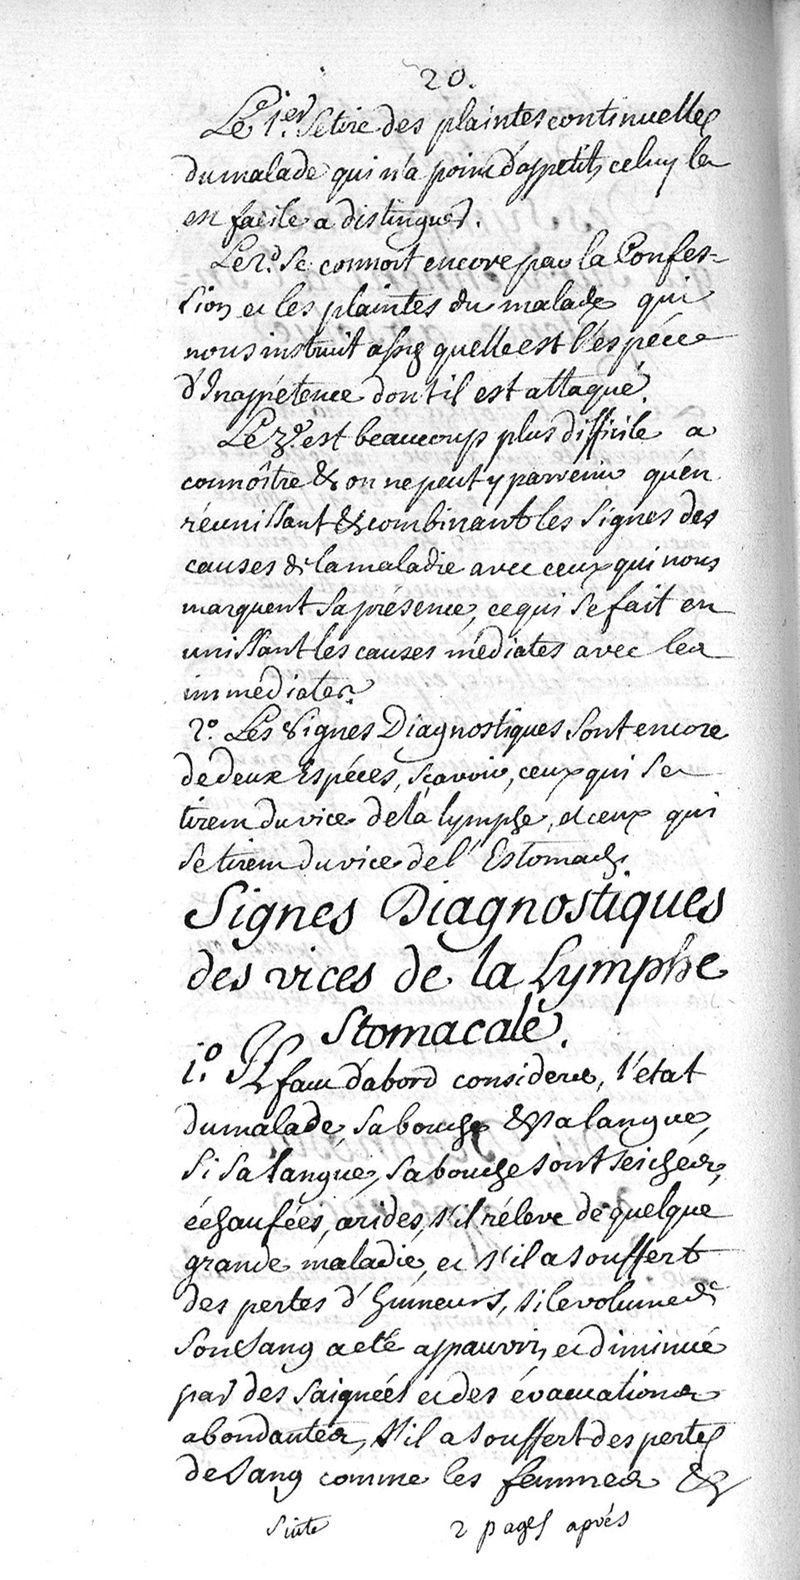 20.
Le 1.er se tire des plaintes continuelles
du malade qui n'a point d'appetit, celuy la
est facile a distinguer.
Le 2.d se connoit encore par la Confes=
sion et les plaintes du malade qui
nous instruit assez quelle est l'espéce
d'Inappétence dont il est attaqué.
Le 3.e est beaucoup plus difficile a
connoître & on ne peut y parvenir qu'en
réunissant & combinant les signes des
causes de la maladie avec ceux qui nous
marquent sa présence, ce qui se fait en
unissant les causes médiates avec les
immediates.
2.o Les signes Diagnostiques sont encore
de deux Espéces, scavoir, ceux qui se
tirent du vice de la lymphe, et ceux qui
se tirent du vice de l'Estomach.
Signes Diagnostiques
des vices de la Lymphe
Stomacale.
1.o Il faut d'abord considerer, l'état
du malade, sa bouche & sa langue,
si sa langue, sa bouche sont seichées,
échaufées, arides, s'il réleve de quelque
grande maladie, et s'il a souffert
des pertes d'humeurs, si le volume de
son sang a eté appauvri, et diminué
par des saignées et des évacuations
abondantes, s'il a souffert des pertes
de sang comme les femmes &
suite 2 pages aprés